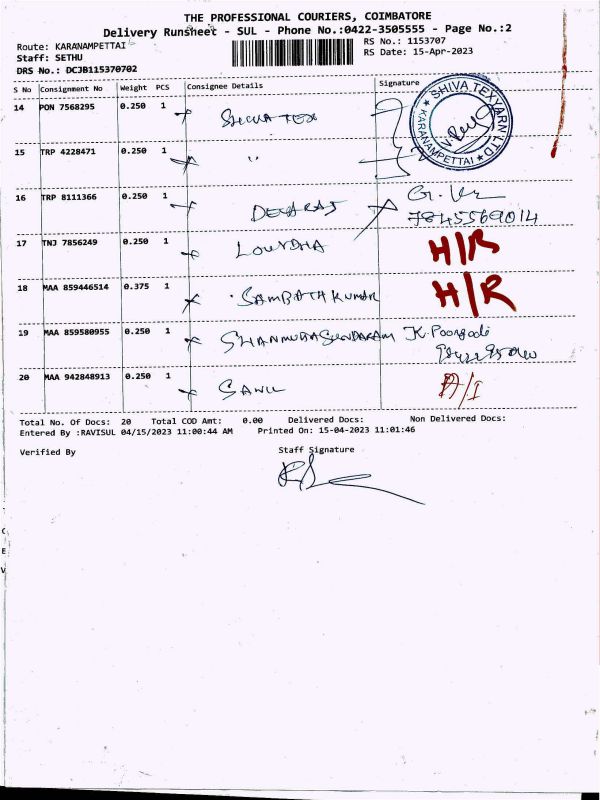 THE PROFESSIONAL COURIERS, COIMBATORE
Delivery Runsheet - SUL - Phone No.:0422-3505555 - Page No.:2
Route: KARANAMPETTAI
RS No.: 1153707
Staff: SETHU
RS Date: 15-Apr-2023
DRS No.: DCJB115370702
S No Consignment No Weight PCS Consignee Details Signature
14 PON 7568295 0.250 1 SHIVA TEX
SHIVA TEXYARN LTD KARANAMPETTAI
15 TRP 4228471 0.250 1 "
16 TRP 8111366 0.250 1 DEVARAJ
7845569014
17 TNJ 7856249 0.250 1 LOURDHA H/R
18 MAA 859446514 0.375 1 SAMBATH KUMAR H/R
19 MAA 859580955 0.250 1 SHANMUGASUNDARAM K.Poongodi
20 MAA 942848913 0.250 1
Total No. Of Docs: 20 Total COD Amt: 0.00 Delivered Docs: Non Delivered Docs:
Entered By :RAVISUL 04/15/2023 11:00:44 AM Printed On: 15-04-2023 11:01:46
Verified By Staff Signature